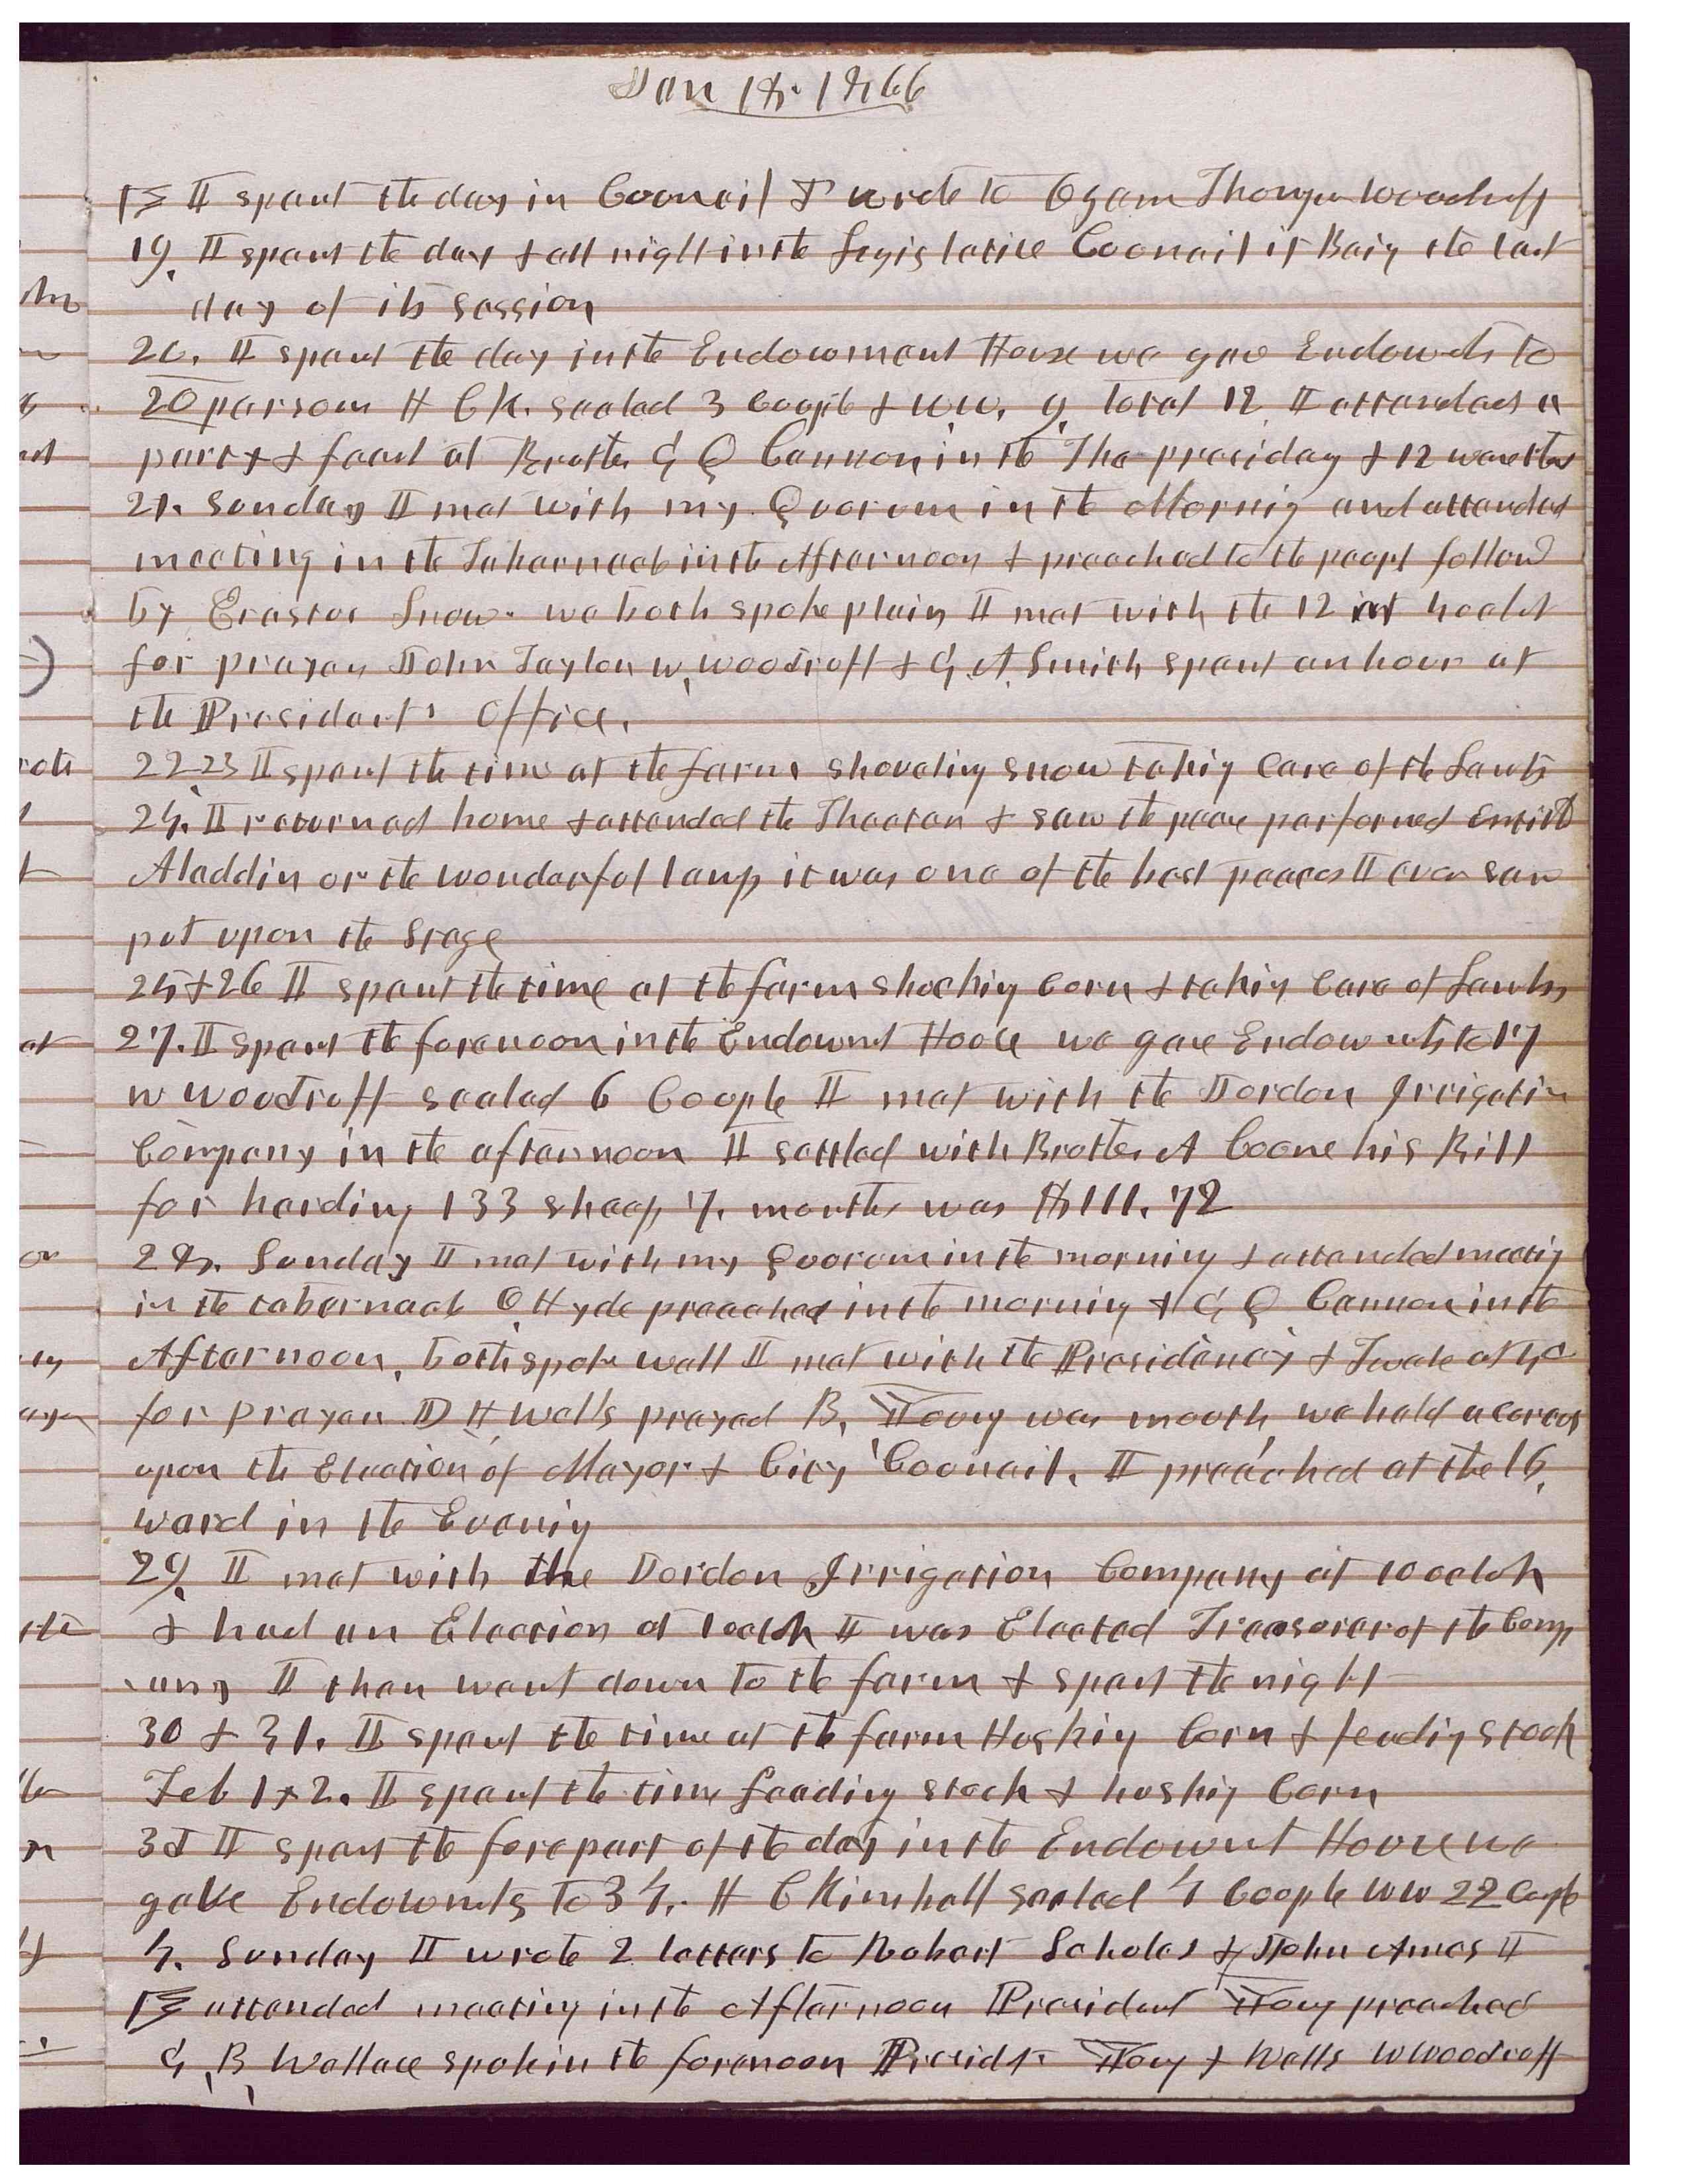 Jan 18. 1866
I spent the day in Council I wrote to Ozem Thompson Woodruff
19. I spent the day & all night in the Legislative Council it Being the last
day of its session
20. I spent the day in the Endowment House we gave Endowmts to
20 persons H C K. sealed 3 Coople & W. W. 9. total 12 I attended a
party & feast at Brother G Q Cannon in the The presidency & 12 were ther
21. Sunday I met with my Quorum in the Mornig and attended
meeting in the Tabernacle in the Afternoon & preached to the peopl followd
by Erastus Snow. we both spoke plain I met with the 12 at
for prayer John Taylor W. Woodruff & G. A. Smith spent an hour at
the Presidents Office.
22 23 I spent the time at the farm shoveling snow takig Care of the Lambs
24. I returned home & attended the Theater & saw the peace performed Entitld
Aladdin or the wonderful lamp it was one of the best peaces I ever saw
put upon the Stage
25 & 26 I spent the time at the farm shuckig Corn & takig Care of Lambs
27. I spent the forenoon in the Endowmt House we gave Endowmts to 17
W Woodruff sealed 6 Coople I met with the Jordon Irrigatin
Company in the afternoon I settled with Brother A Coone his Bill
for herding 133 sheep 7. months was $111.72
28. Sunday I met with my Quorum in the morning & attended meetig
in the tabernacle O. Hyde preached in the morning & G Q Cannon in the
Afternoon. both spoke well I met with the Presidency & Twelve
for prayer D H Wells prayed B. Young was mouth we held a corcus
upon the Election of Mayor & City Council. I preached at the 16.
ward in the Evenig
29. I met with the Jordon Irrigation Company at 10 oclok
& had an Election at oclok I was Elected Treasorer of the Comp
any I then went down to the farm & spent the night
30 & 31. I spent the time at the farm Huskig Corn & feedig stock
Feb 1 & 2. I spent the time feeding stock & huskig Corn
3d I spent the forepart of the day in the Endowmt House we
gave Endowmts to 34. H C Kimball sealed 4 Coople WW 22 Copl
4. Sunday I wrote 2 letters to Robert Scholes & John Ames I
attended meeting in the Afternoon President Young preached
G. B. Wallace spoke in the forenoon Presidt Young & Wells W Woodruff